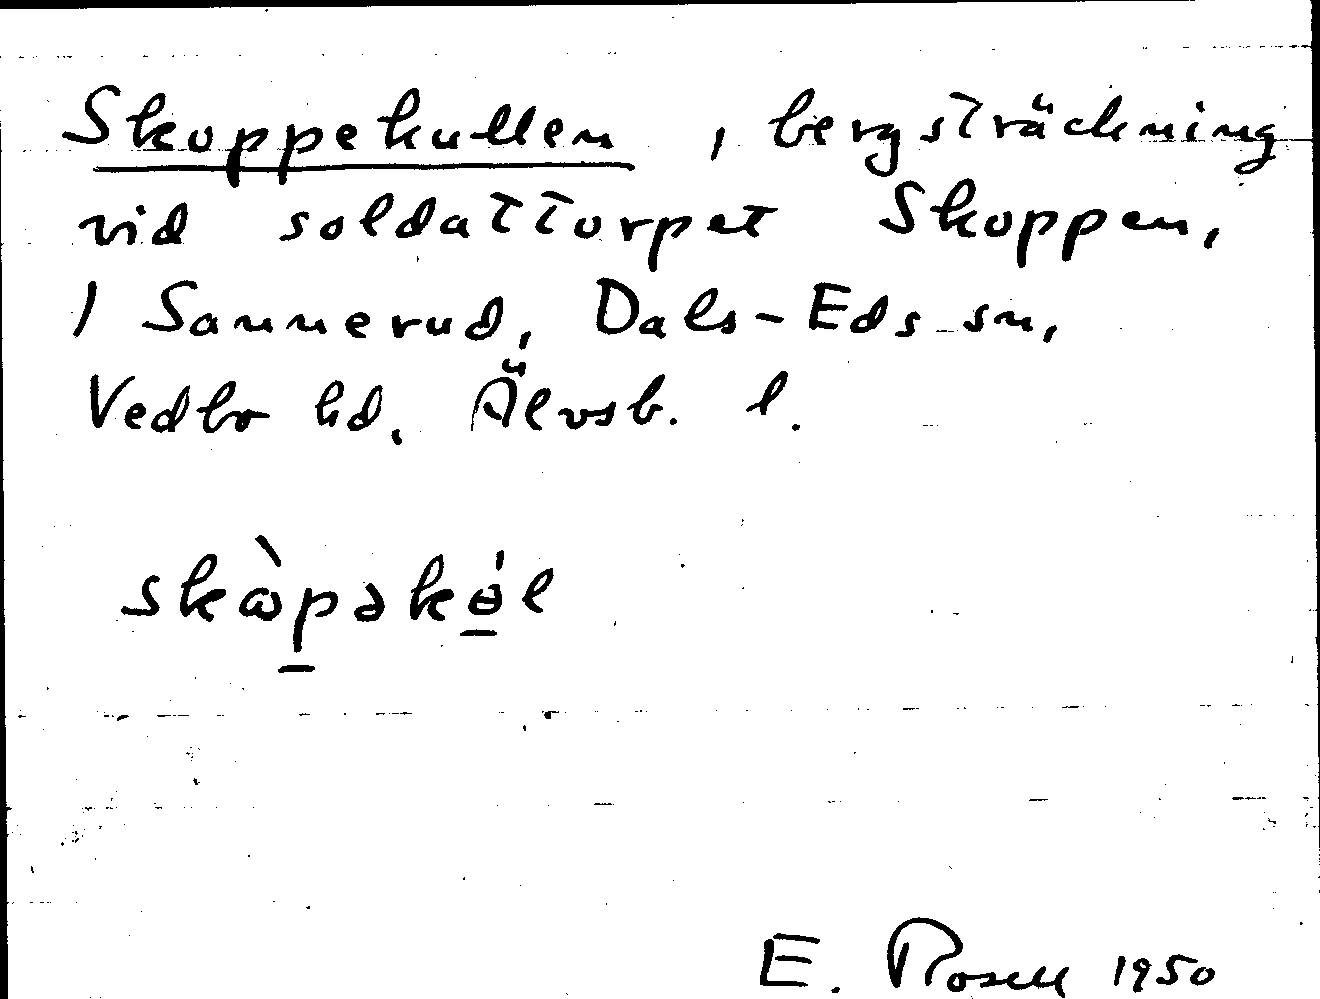 Skoppekullen, bergsträckning
vid soldattorpet Skoppen,
/ Sannerud, Dals-Eds sn,
Vedbo hd. Älvsb. l.
skàpəkɵ́l
E. Rosell 1950